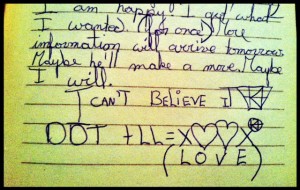 I am happy I got what
I wanted. (for once) More
information will arrive tomorrow.
Maybe he'll make a move. Maybe
I will.
I CAN'T BELIEVE I
DOT + LL = X♡♡X
(LOVE)